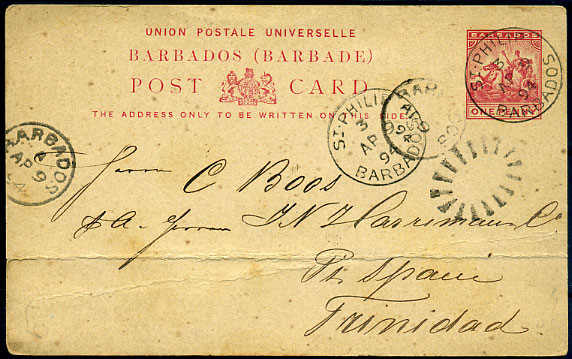 UNION POSTALE UNIVERSELLE
BARBADOS (BARBADE)
POST CARD
THE ADDRESS ONLY TO BE WRITTEN ON THIS SIDE
BARBADOS
ONE PENNY
ST. PHILIP
AP
94
BARBADOS
ST. PHILIP
3
AP
94
BARBADOS
BARBADOS
AP 9
94
BARBADOS
AP 9
Herrn C Boos
p A. Herren J. N. Harriman & Co
Pt. Spain
Trinidad